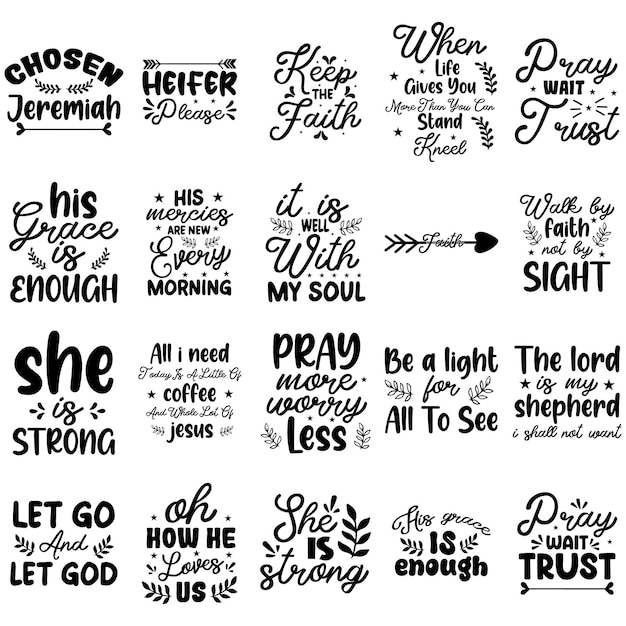 CHOSEN
Jeremiah
HEIFER
Please
Keep
THE
Faith
When
Life
Gives You
More Than You Can
Stand
Kneel
Pray
WAIT
Trust
his
Grace
is
ENOUGH
HIS
mercies
ARE NEW
Every
MORNING
it is
WELL
With
MY SOUL
Faith
Walk by
faith
not by
SIGHT
she
is
STRONG
All i need
Today Is A Little Of
coffee
And Whole Lot Of
jesus
PRAY
more
worry
Less
Be a light
for
All To See
The lord
is my
shepherd
i shall not want
LET GO
And
LET GOD
oh
HOW HE
Loves
US
She
IS
strong
His grace
IS
enough
Pray
WAIT
TRUST